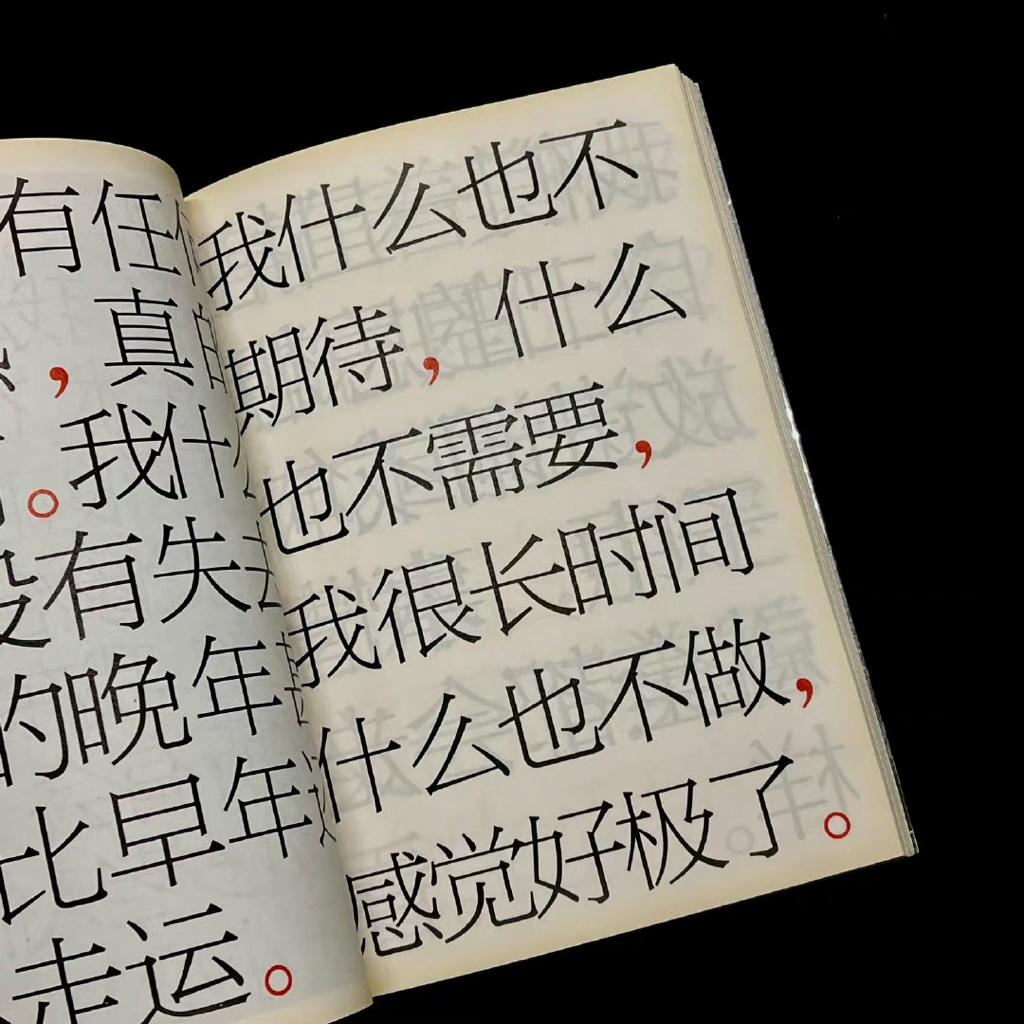 有任
，真的
。我什
没有失去
的晚年
比早年
走运。
我什么也不
期待，什么
也不需要，
我很长时间
什么也不做，
感觉好极了。